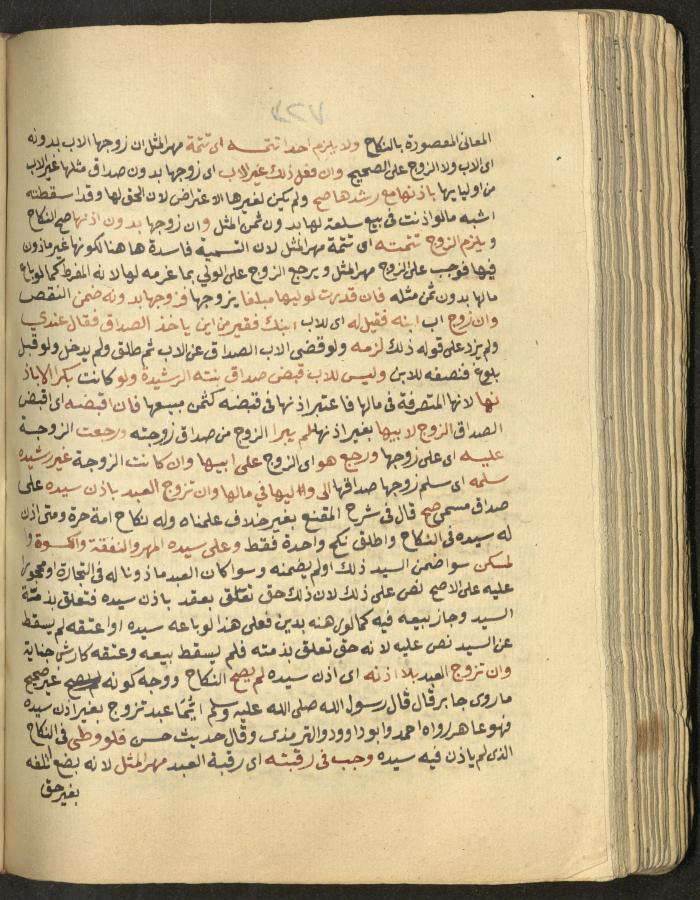 المعانى المقصودة بالنكاح ولا يلزم احدا تتمــه اى تتمة مهر المثل ان زوجها الاب بدونه
اى الاب ولا الزوج على الصحيح وان فعل ذلك غير الاب اى زوجها بدون صداق مثلها غير الاب
من اوليايها باذنها مع رشدها صح ولم يكن لغيرها الاعتراض لان الحق لها وقد اسقطته
اشبه مالو اذنت فى بيع سلعة لها بدون ثمن المثل وان زوجها بدون اذنها صح النكاح
ويلزم الزوج تتمته اى تتمة مهر المثل لان التسمية فاسدة هاهنا لكونها غير ماذون
فيها فوجب على الزوج مهر المثل ويرجع الزوج على الولي بما غرمه لها لانه المفرط كما لو باع
مالها بدون ثمن مثله فان قدرت لوليها مبلغا يزوجها فزوجها بدونه ضمن النقص
وان زوج اب ابنه فقيل له اى للاب ابنك فقير من اين ياخذ الصداق فقال عندي
ولم يزد على قوله ذلك لزمه ولو قضى الاب الصداق عن الاب ثم طلق ولم يدخل ولو قبل
بلوغ فنصفه للابن وليس للاب قبض صداق بنته الرشيدة ولو كانت بكرا الا باذ
نها لانها المتصرفة في مالها فاعتبر اذنها فى قبضه كثمن مبيعها فان اقبضه اى اقبض
الصداق الزوج لابيها بغير اذنها لم يبرا الزوج من صداق زوجته ورجعت الزوجة
عليه اى على زوجها ورجع هو اى الزوج على ابيها وان كانت الزوجة غير رشيده
سلمه اى سلم زوجها صداقها الى وليها في مالها وان تزوج العبد باذن سيده على
صداق مسمى صح قال في شرح المقنع بغير خلاف علمناه وله نكاح امة حرة ومتى اذن
له سيده فى النكاح واطلق نكح واحدة فقط وعلى سيده المهر والنفقة والكسوة وا
لمسكن سوا ضمن السيد ذلك اولم يضمنه وسوا كان العبد ماذونا له فى التجارة او محجورا
عليه على الاصح نص على ذلك لان ذلك حق تعلق بعقد باذن سيده فتعلق بذمة
السيد وجاز بيعه فيه كما لو رهنه بدين فعلى هذا لو باعه سيده او اعتقه لم يسقط
عن السيد نص عليه لانه حق تعلق بذمته فلم يسقط ببيعه وعتقه كارش جناية
وان تزوج العبد بلا اذنه اى اذن سيده لم يصح النكاح ووجه كونه غير صحيح
ما روى جابر قال قال رسول الله صلى الله عليه وسلم ايّما عبد تزوج بغير اذن سيده
فهو عاهر رواه احمد وابو داوود والترمذى وقال حديث حسن فلو وطى فى النكاح
الذى لم ياذن فيه سيده وجب فى رقبته اى رقبة العبد مهر المثل لانه بضع اتلفه
بغير حق